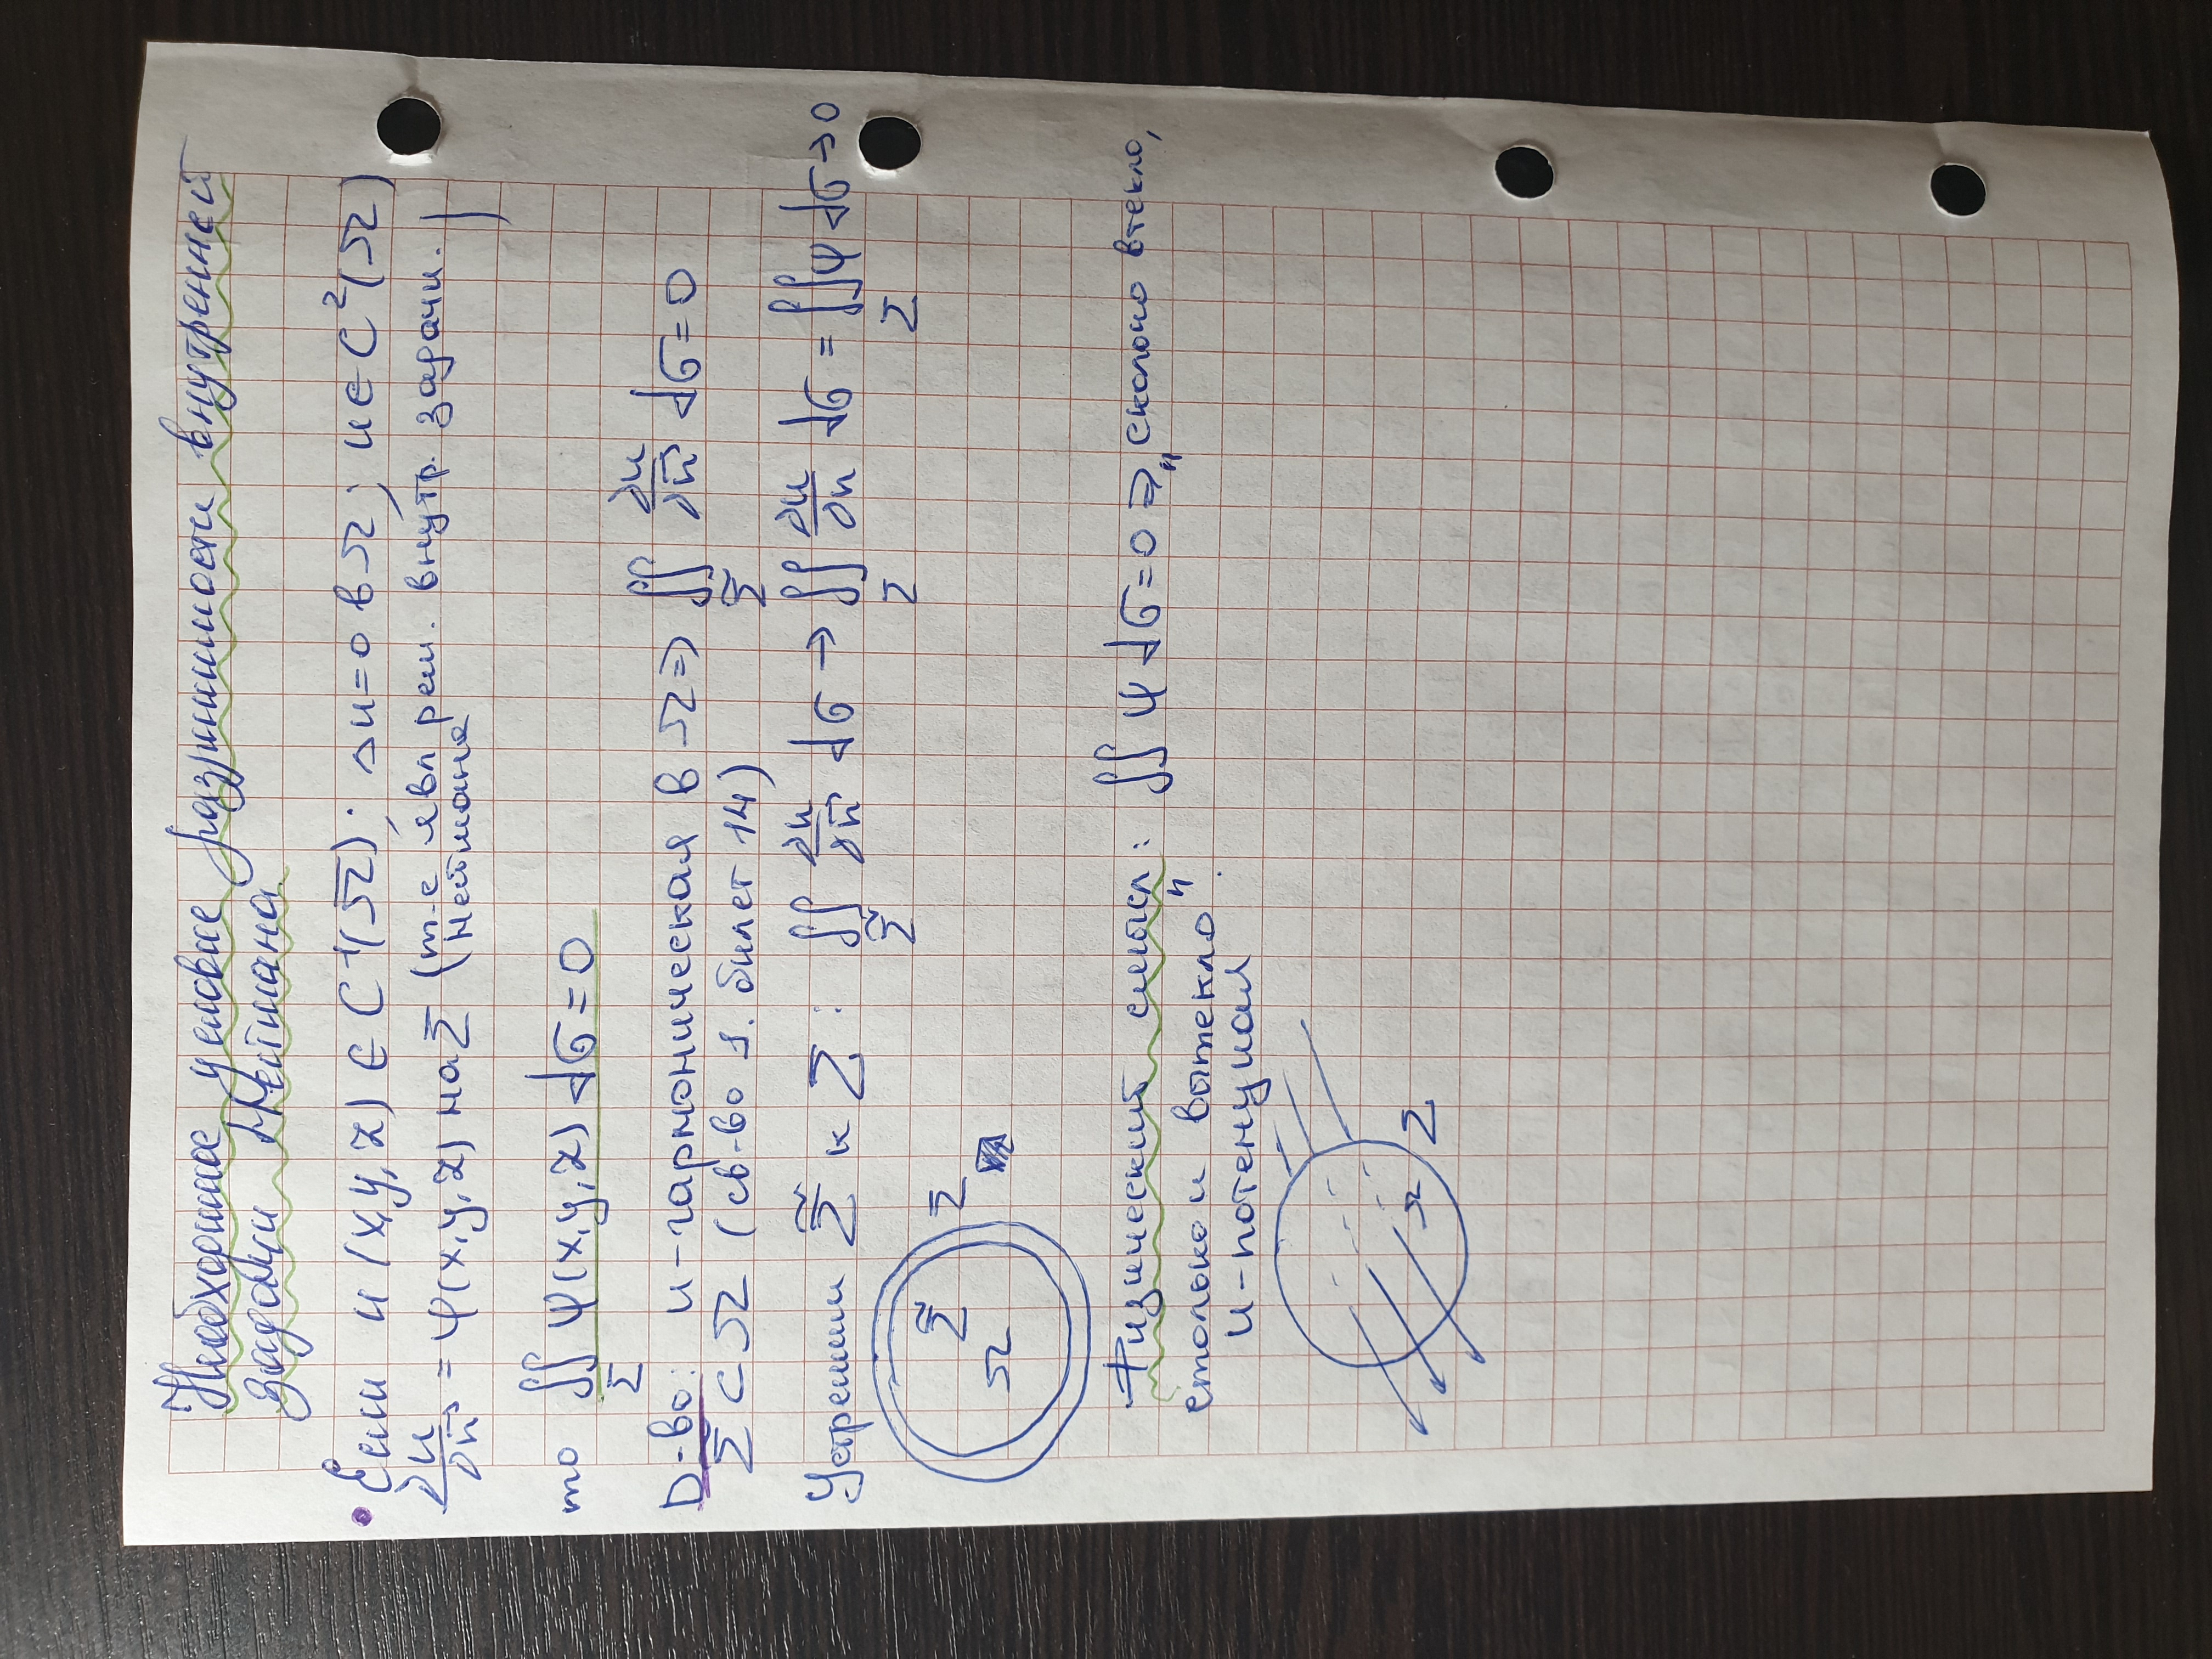 Необходимое условие разрешимости внутренней
задачи Неймана.
• Если u(x,y,z) ∈ C¹(Ω̅); Δu=0 в Ω; u∈C²(Ω)
∂u/∂n⃗ = ψ(x,y,z) на Σ (т-е явл реш. внутр. задачи.
Неймана)
то ∬_Σ ψ(x,y,z) dσ = 0
D-во: u-гармоническая в Ω => ∬_Σ̃ ∂u/∂n⃗ dσ = 0
Σ̃ ⊂ Ω (св-во 1. билет 14)
Устремим Σ̃ к Σ : ∬_Σ̃ ∂u/∂n⃗ dσ → ∬_Σ ∂u/∂n dσ = ∬_Σ ψ dσ → 0
Σ
Σ̃
Ω
Физический смысл: ∬ ψ dσ = 0 => „сколько втекло,
столько и вытекло".
u-потенциал
Ω
Σ